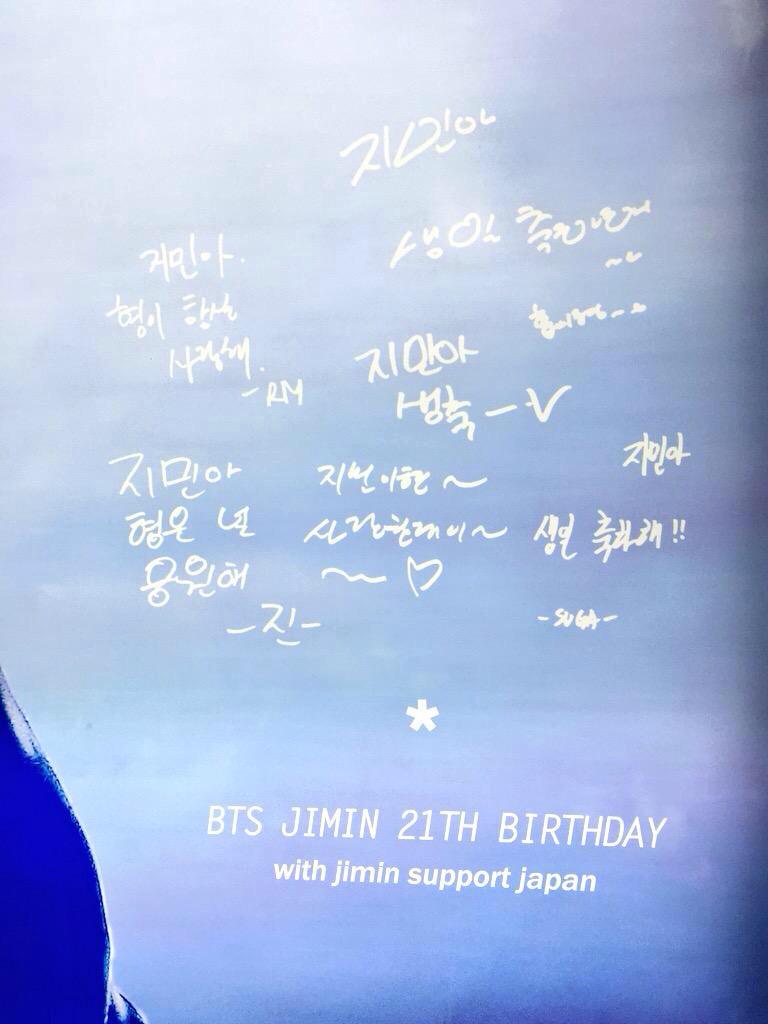 지민아
생일 축하한다
~~
지민아.
형이 항상
사랑해.
-RM
지민아
생축 - V
지민아
형은 널
응원해
-진-
~
~
~ ♡
지민아
생일 축하해!!
-SUGA-
*
BTS JIMIN 21TH BIRTHDAY
with jimin support japan